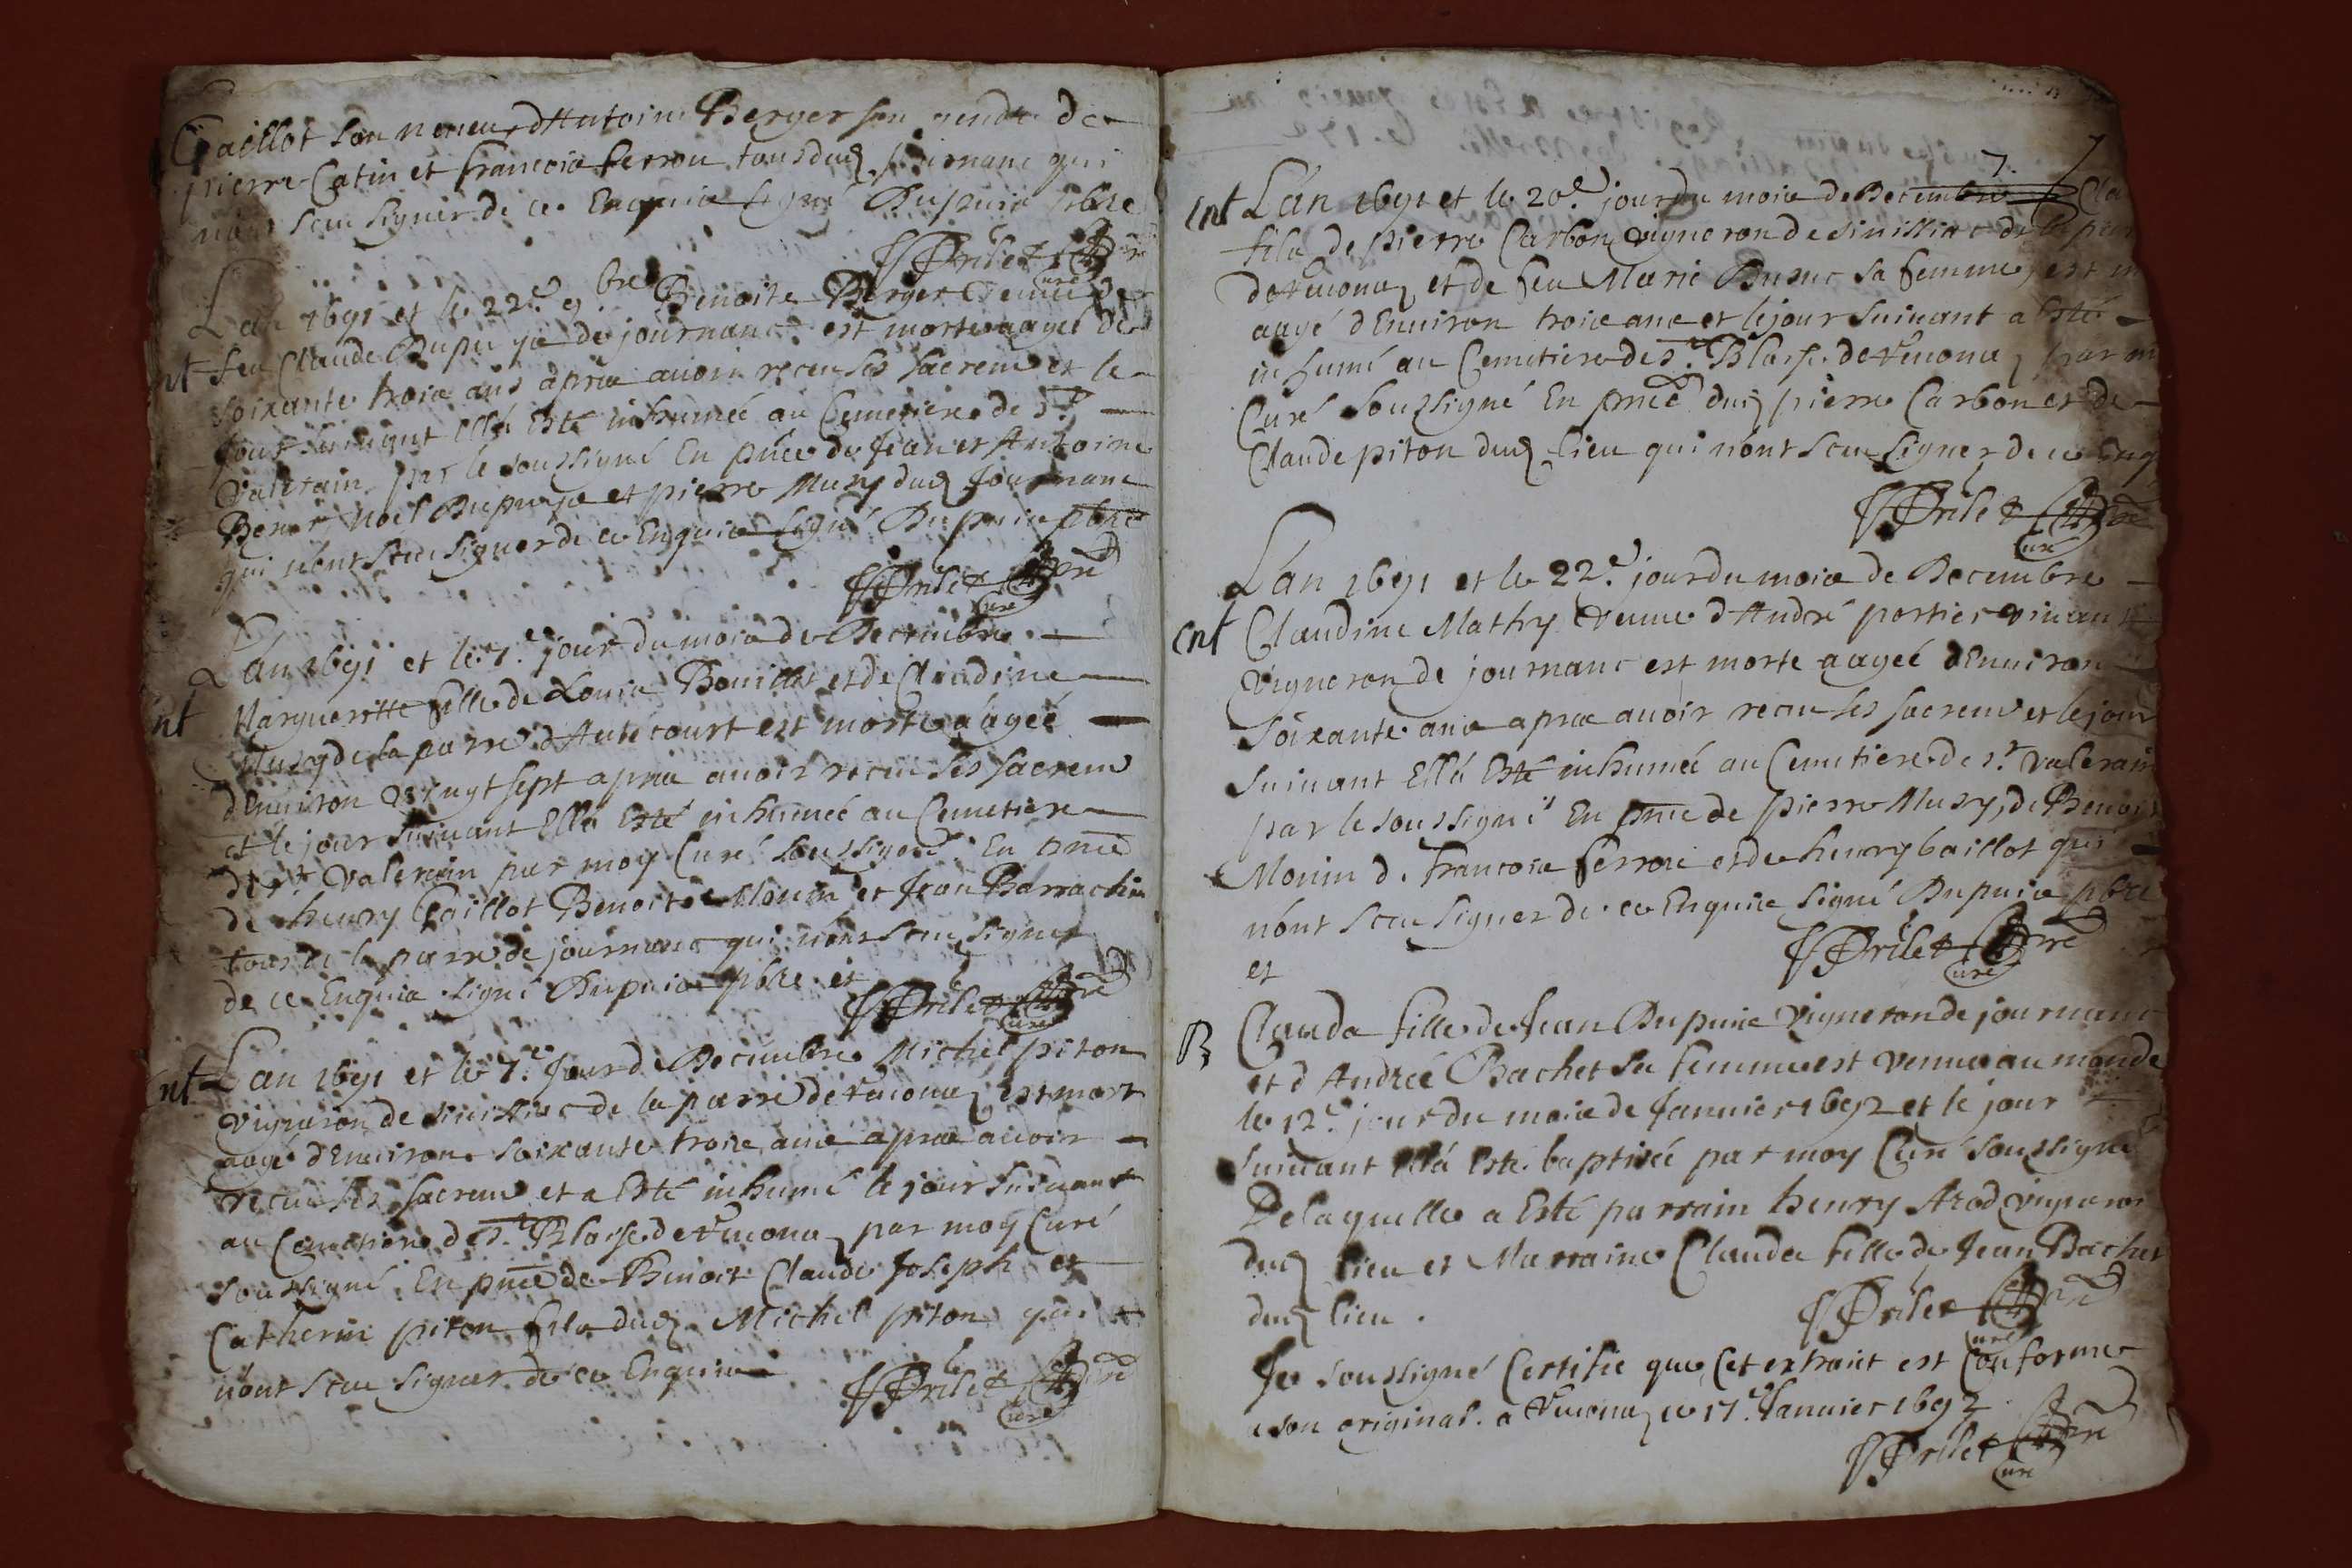 Gaillot son neveu, d'Antoine Berger son gendre de
pierre Catin et francois ferrou tous dud. journanc qui
n'ont sceu signer de ce Enquis signé Dupuis pbre
J Drilet pre
Curé
L'an 1691 et le 22e 9bre Benoite Berger veuve de
feu Claude Dupuys de journanc est morte aagée de
soixante trois ans apres avoir receu ses sacrem et le
jour suivant ella Esté inhumée au Cemetiere de st
Valerain par le soussigné En pnce de Jean et Antoine
Berger Noel Dupuys et pierre Musy dud. Journanc
qui n'ont sceu signer de ce Enquis signé Dupuis pbre
J Drilet pre
Curé
L'an 1691 et le 7e jour du mois de Decembre
Margueritte fille de Louis Bouillet et de Claudine
Musy de la parre d'Autecourt est morte aagée
d'Environ vingt sept apres avoir receu ses sacrem
et le jour suivant Ella Esté inhumée au Cemetiere
de st Valerain par moy Curé soussigné En pnce
de henry Gaillot Benoit Monin et Jean Barrachin
tous de la parre de journanc qui n'ont sceu signer
de ce Enquis signé Dupuis pbre et
J Drilet pre
Curé
Ent L'an 1691 et le 7e Jour de Decembre Michel piton
vigneron de sinissiac de la parre de vieona est mort
aagé d'Environ soixante trois ans apres avoir
receu ses sacrem et a Esté inhumé le jour suivant
au Cemetiere de st Blaise de par moy Curé
soussigné En pnce de Benoit Claude Joseph et
Catherin piton fils dud. Michel piton qui
n'ont sceu signer de ce Enquis
J Drilet pre
Curé
7.
Ent L'an 1691 et le 20e jour du mois de Decembre Cla
fils de pierre Carbon vigneron de de la par
de et de feu Marie sa femme, est m
aagé d'Environ trois ans et le jour suivant a Esté
inhumé au Cemetiere de st Blaise de par m
Curé soussigné En pnce dud. pierre Carbon et de
Claude piton dud. lieu qui n'ont sceu signer de ce Enq
J Drilet pre
Curé
L'an 1691 et le 22e jour du mois de Decembre
Ent Claudine Mathy veuve d'André portier vivant
Vigneron de journanc est morte aagée d'Environ
soixante ans apres avoir receu ses sacrem et le jour
suivant Ella Esté inhumée au Cemetiere de st valerain
par le soussigné En pnce de pierre Musy, de Benoit
Monin d. francois ferrou et de henry Gaillot qui
n'ont sceu signer de ce Enquis signé Dupuis pbre
et
J Drilet pre
Curé
B Clauda fille de Jean Dupuis Vigneron de journanc
et d'Andrée Bachet sa femme est venue au monde
le 12e jour du mois de Janvier 1692 et le jour
suivant Ella Esté baptisée par moy Curé soussigné
De laquelle a Esté parrain henry Arod vigneron
dud. lieu et Marraine Clauda fille de Jean Bachet
dud. lieu.
J Drilet pre
Curé
Je soussigné Certifie que Cet extrait est Conforme
a son original. a ce 17e Janvier 1692
J Drilet pre
Curé